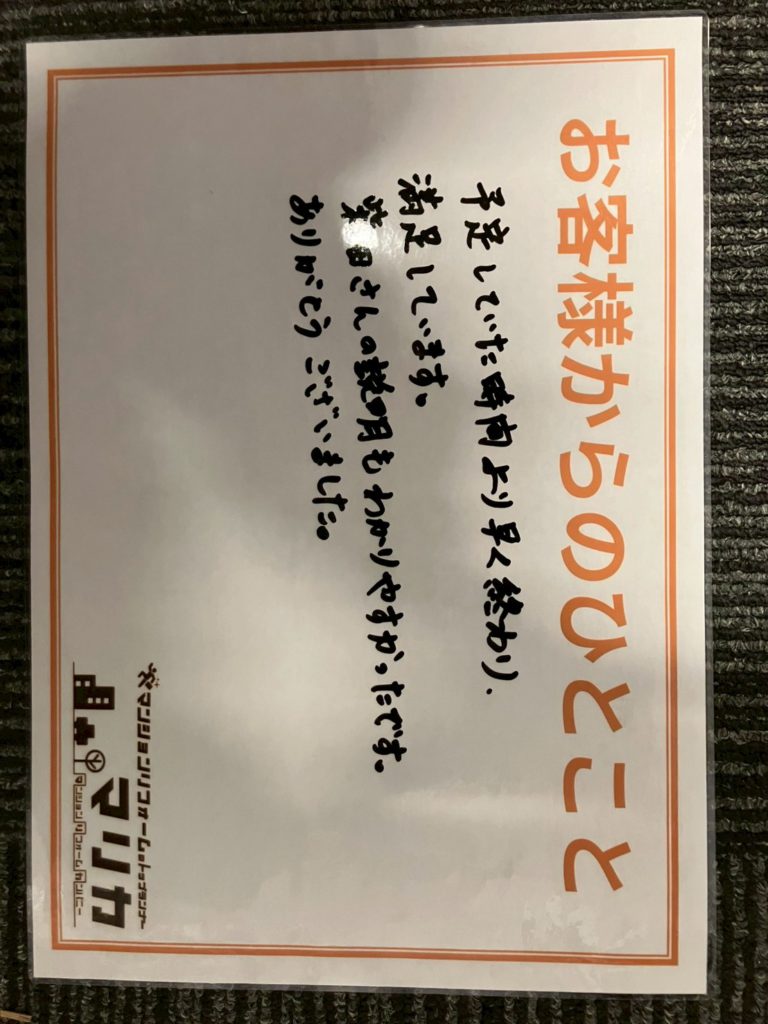 お客様からのひとこと
予定していた時間より早く終わり、
満足しています。
柴田さんの説明もわかりやすかったです。
ありがとうございました。
マンションリフォームのトップランナー
マリカ
マンションリフォームカンパニー